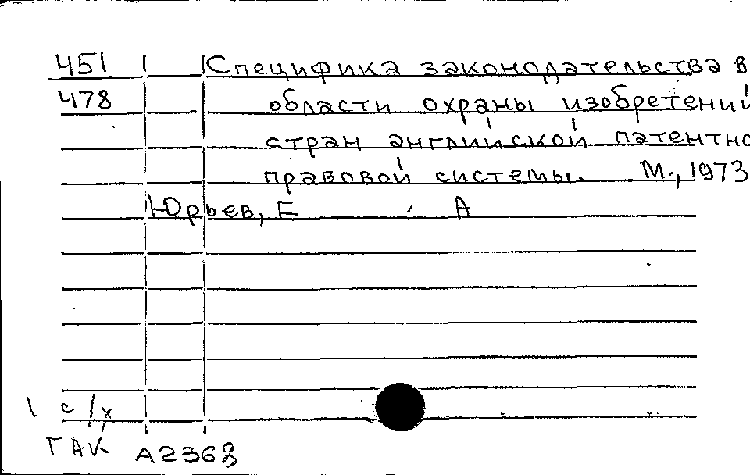 451 Специфика законодательства в
478 области охраны изобретений
стран английской патентно
правовой системы. М., 1973
Юрьев, Е А
1 с/х
ГАК А2368